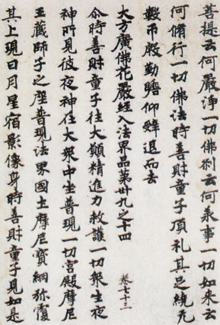 菩提云何嚴淨一切佛刹云何承事一切如來云
何脩行一切佛法時善財童子頂礼其足繞无
數帀慇懃瞻仰辝退而去
大方廣佛花嚴經入法界品第卅九之十四
卷七十三
尒時善財童子往大願精進力救護一切衆生夜
神所見彼夜神在大衆中坐普現一切宮殿摩尼
王藏師子之座普現法界國土摩尼寳網弥覆
其上現日月星宿影像身時善財童子見如是